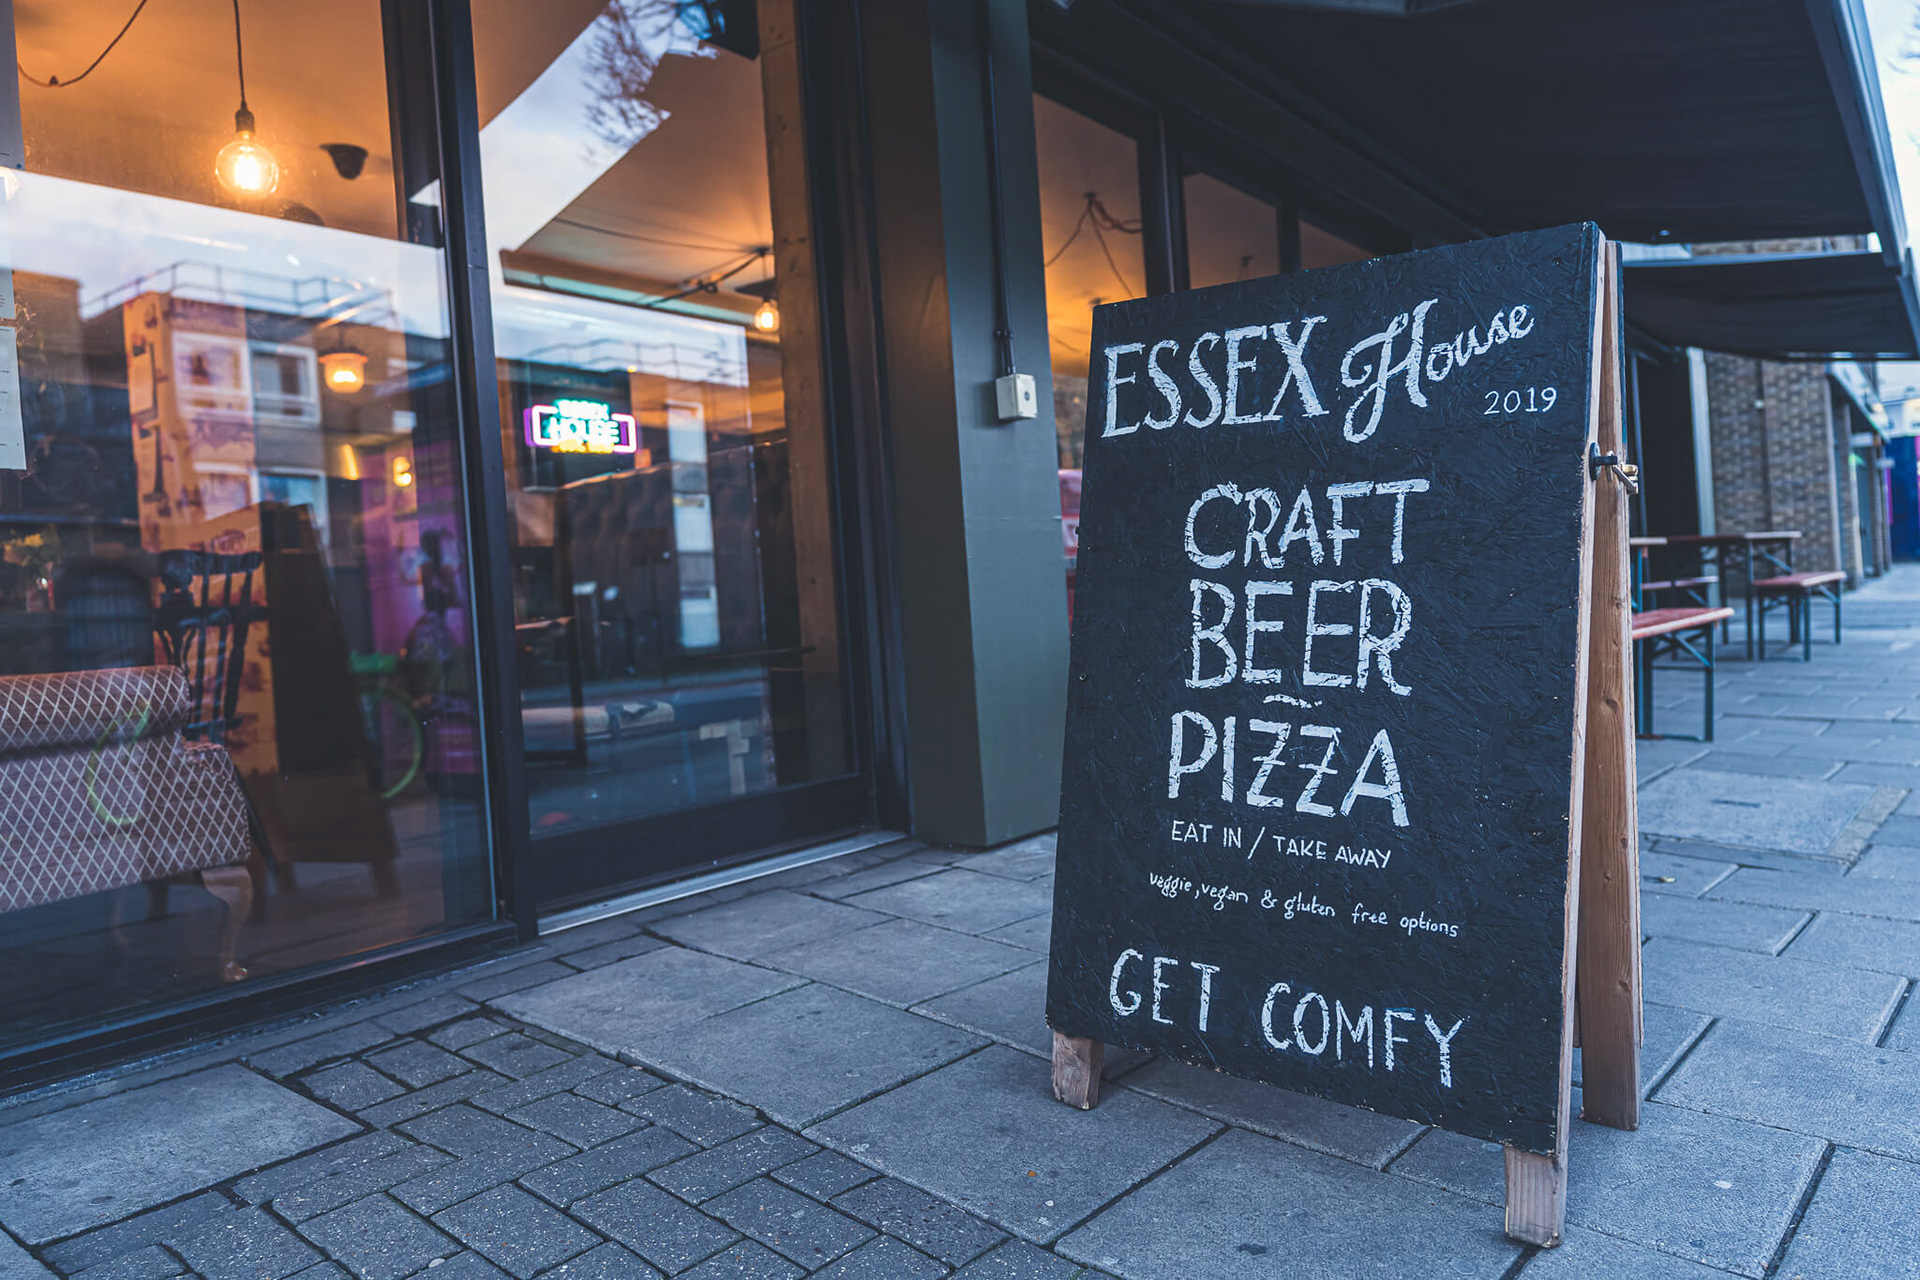 ESSEX House
2019
CRAFT
BEER
PIZZA
EAT IN / TAKE AWAY
veggie, vegan & gluten free options
GET COMFY
ESSEX
HOUSE